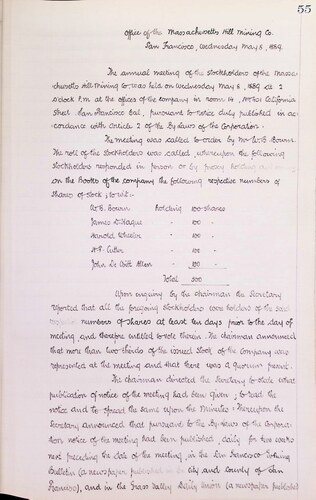 55
Office of the Massachusetts Hill Mining Co.
San Francisco, Wednesday May 8, 1889.
The annual meeting of the stockholders of the Massa-
chusetts Hill Mining Co. was held on Wednesday May 8, 1889 at 2
o'clock P.m. at the offices of the company in room 14, No 401 California
Street, San Francisco Cal., pursuant to notice duly published in ac-
cordance with article 2 of the By Laws of the Corporation.
The meeting was called to order by Mr W.B. Bourn.
The roll of the stockholders was called, whereupon the following
stockholders responded in person or by proxy holding
on the Books of the company the following respective numbers of
shares of stock, to wit:-
W.B. Bourn holding 100 shares
James D. Hague " 100 "
Harold Wheeler " 100 "
H.F. Cutler " 100 "
John De Witt Allen " 100 "
Total 500
Upon enquiry by the chairman the Secretary
reported that all the foregoing stockholders were holders of the said
numbers of shares at least ten days prior to the day of
meeting and therefore entitled to vote therein. The chairman announced
that more than two thirds of the issued stock of the Company was
represented at the meeting and that there was a quorum present.
The chairman directed the Secretary to state what
publication of notice of the meeting had been given, to read the
notice and to spread the same upon the Minutes; Thereupon the
Secretary announced that pursuant to the By-Laws of the Corpora-
tion notice of the meeting had been published, daily for two weeks
next preceding the date of the meeting, in the San Francisco Evening
Bulletin (a newspaper published in the City and County of San
Francisco), and in the Grass Valley Daily Union (a newspaper published